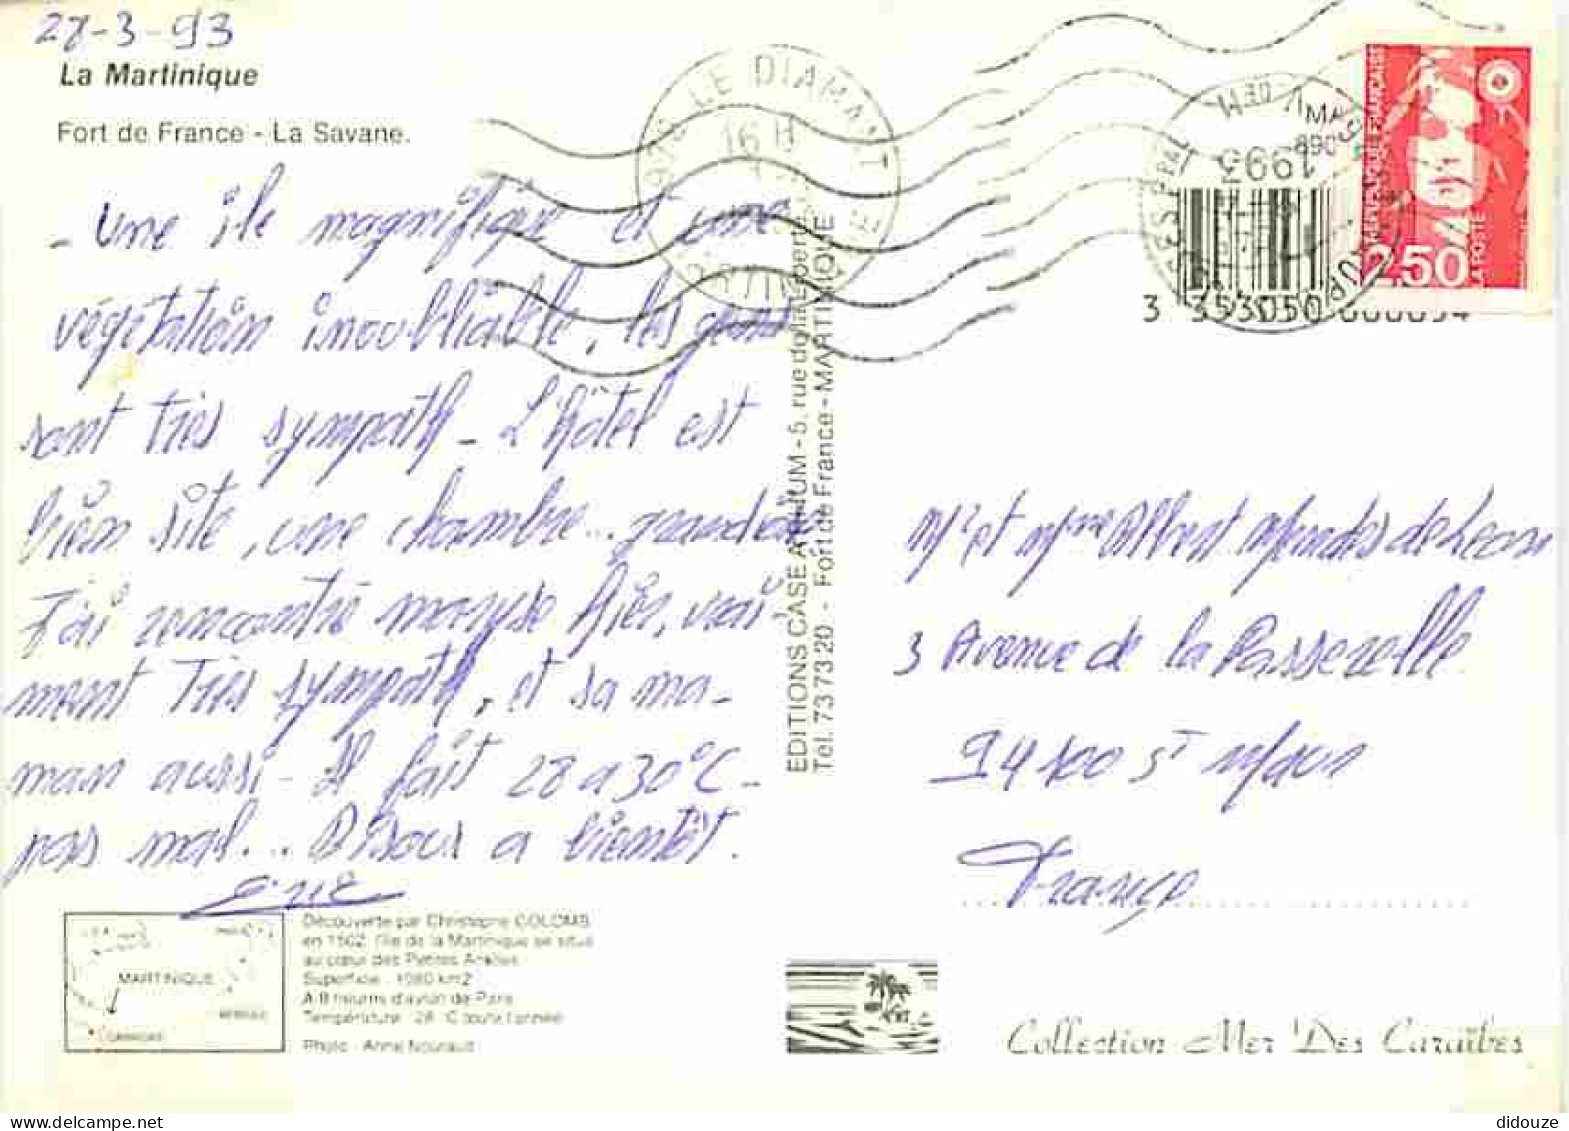 28-3-93
La Martinique
Fort de France - La Savane.
- Une île magnifique et une
végétation inoubliable, les gens
sont très sympath - L'hôtel est
bien sité, une chambre... grandiose
J'ai rencontré maryse hier, vrai
ment très sympath, et sa ma-
man aussi - Il fait 28 a 30°C -
pas mal... Bisous a bientôt.
Eric
Découverte par Christophe COLOMB
en 1502, l'île de la Martinique se situe
au cœur des Petites Antilles
Superficie : 1080 km2
A 8 heures d'avion de Paris
Température : 28 °C toute l'année
Photo - Anne Nouraud
MARTINIQUE
EDITIONS CASE A RHUM - 5, rue de la Liberté
Tél. 73 73 20 - Fort de France - MARTINIQUE
LE DIAMANT
16 H
MARTINIQUE
1993
RÉPUBLIQUE FRANÇAISE
2,50
LA POSTE
3 353050
Mr et Mme Albert Mendes de Leon
3 Avenue de la Passerelle
94100 St Maur
France
Collection Mer Des Caraïbes
didouze